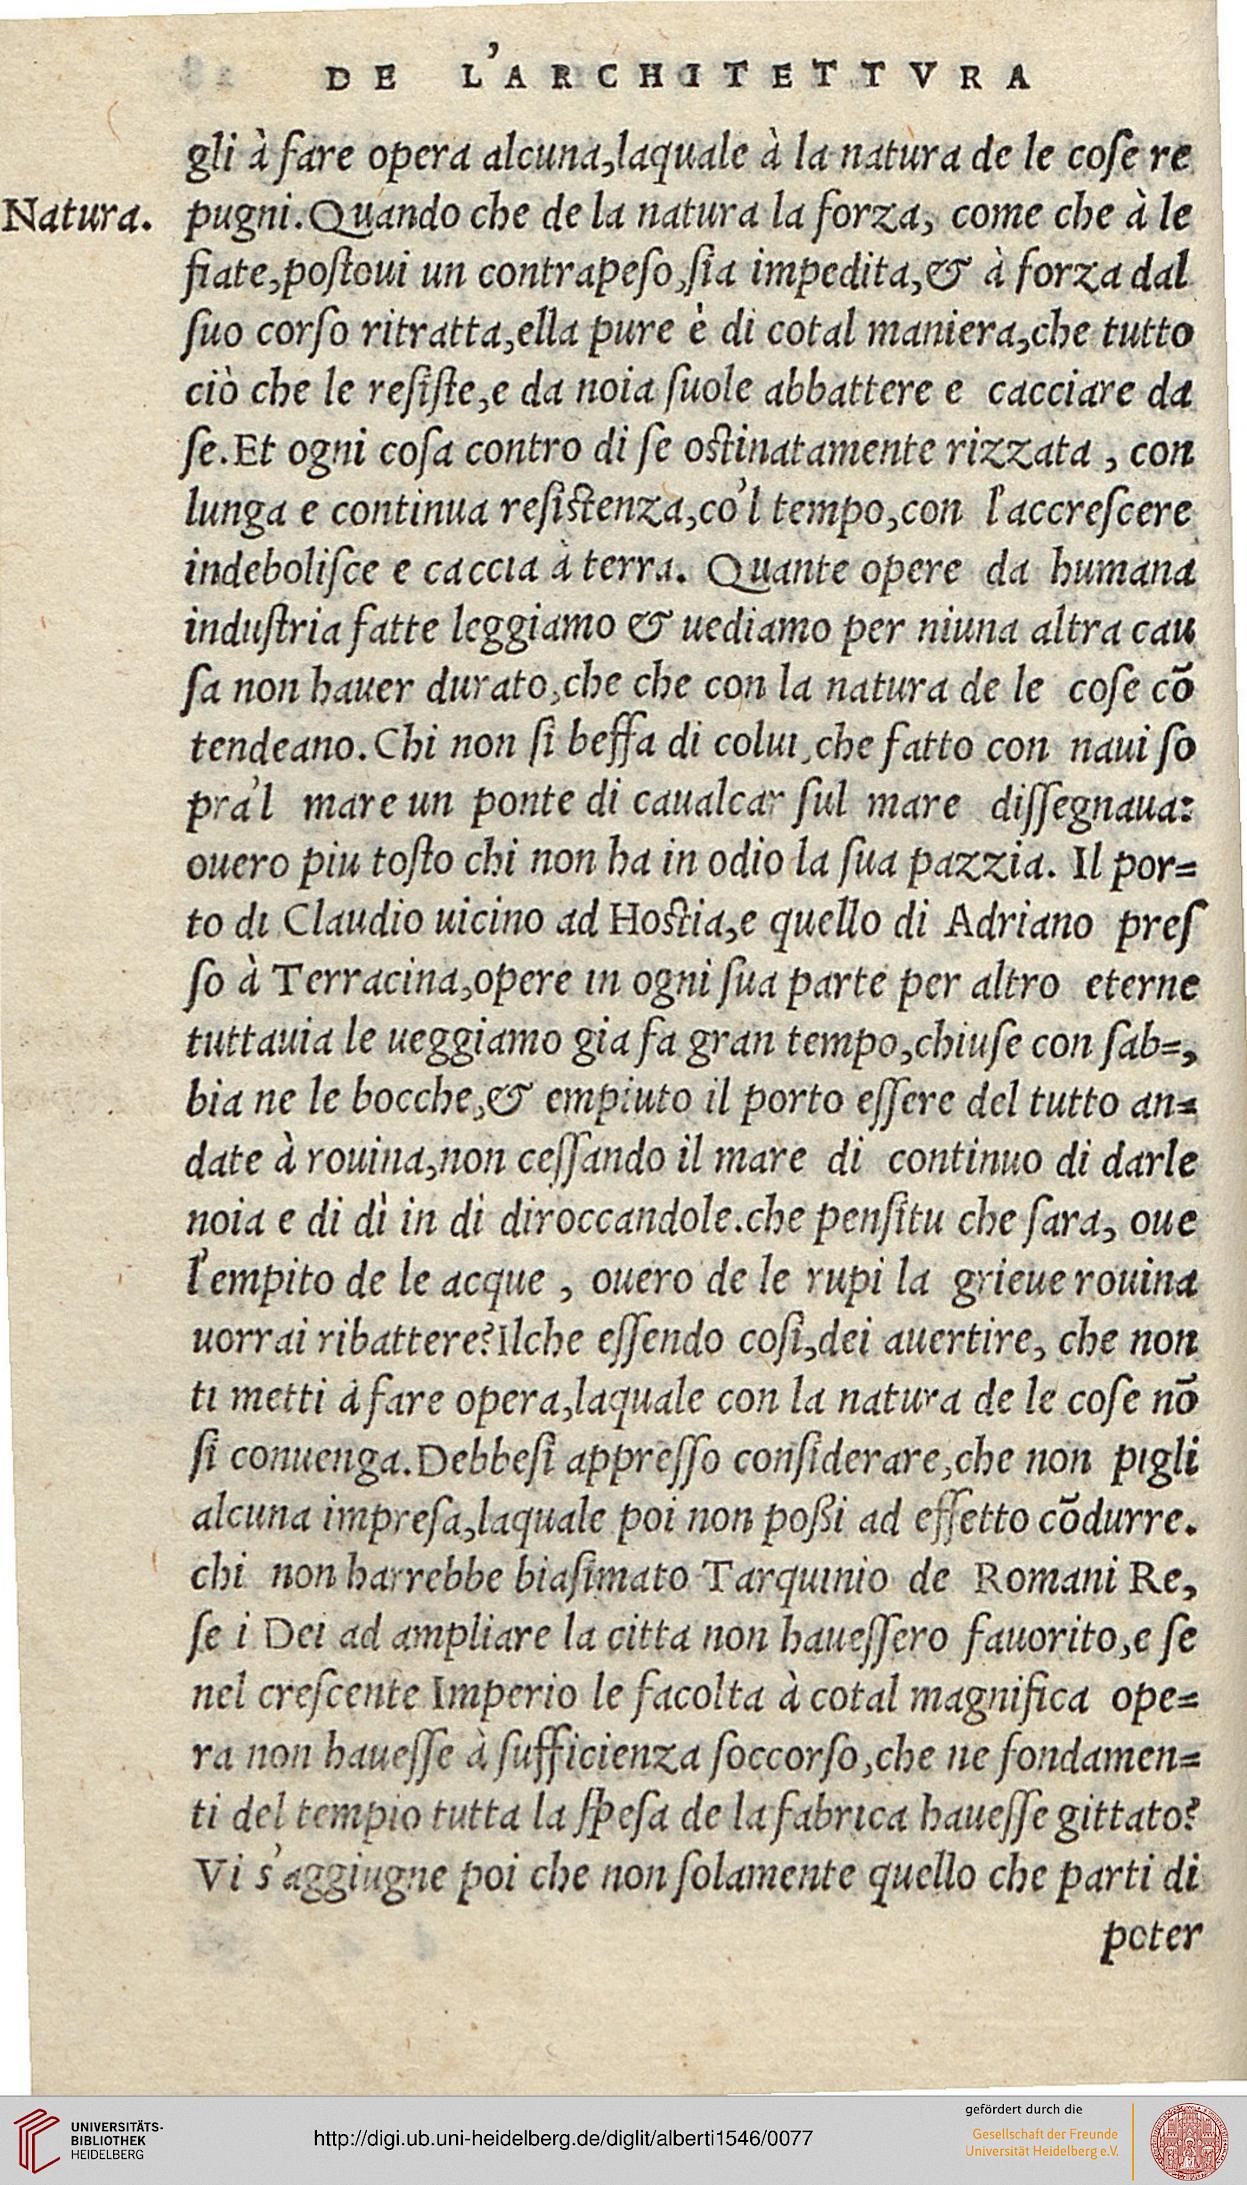 DE L'ARCHITETTVRA
gli à fare opera alcuna,laquale à la natura de le coſe re
Natura.
pugni.Quando che de la natura la forza, come che à le
fiate,poſtoui un contrapeſo,ſia impedita,& à forza dal
ſuo corſo ritratta,ella pure è di cotal maniera,che tutto
ciò che le reſiſte,e da noia ſuole abbattere e cacciare da
ſe.Et ogni coſa contro di ſe oſtinatamente rizzata , con
lunga e continua reſiſtenza,co'l tempo,con l'accreſcere
indeboliſce e caccia à terra. Quante opere da humana
induſtria fatte leggiamo & uediamo per niuna altra cau
ſa non hauer durato,che che con la natura de le coſe cõ
tendeano.Chi non ſi beffa di colui,che fatto con naui ſo
pra'l mare un ponte di caualcar ſul mare diſſegnaua:
ouero piu toſto chi non ha in odio la ſua pazzia. Il por=
to di Claudio uicino ad Hoſtia,e quello di Adriano preſ
ſo à Terracina,opere in ogni ſua parte per altro eterne
tuttauia le ueggiamo gia fa gran tempo,chiuſe con ſab=,
bia ne le bocche,& empiuto il porto eſſere del tutto an=
date à rouina,non ceſſando il mare di continuo di darle
noia e di dì in dì diroccandole.che penſitu che ſara, oue
l'empito de le acque , ouero de le rupi la grieue rouina
uorrai ribattere?Ilche eſſendo coſi,dei auertire, che non
ti metti à fare opera,laquale con la natura de le coſe nõ
ſi conuenga.Debbeſi appreſſo conſiderare,che non pigli
alcuna impreſa,laquale poi non poßi ad effetto cõdurre.
chi non harrebbe biaſimato Tarquinio de Romani Re,
ſe i Dei ad ampliare la citta non haueſſero fauorito,e ſe
nel creſcente Imperio le facolta à cotal magnifica ope=
ra non haueſſe à ſufficienza ſoccorſo,che ne fondamen=
ti del tempio tutta la ſpeſa de la fabrica haueſſe gittato?
Vi s'aggiugne poi che non ſolamente quello che parti di
poter
UNIVERSITÄTS-
BIBLIOTHEK
HEIDELBERG
http://digi.ub.uni-heidelberg.de/diglit/alberti1546/0077
gefördert durch die
Gesellschaft der Freunde
Universität Heidelberg e.V.